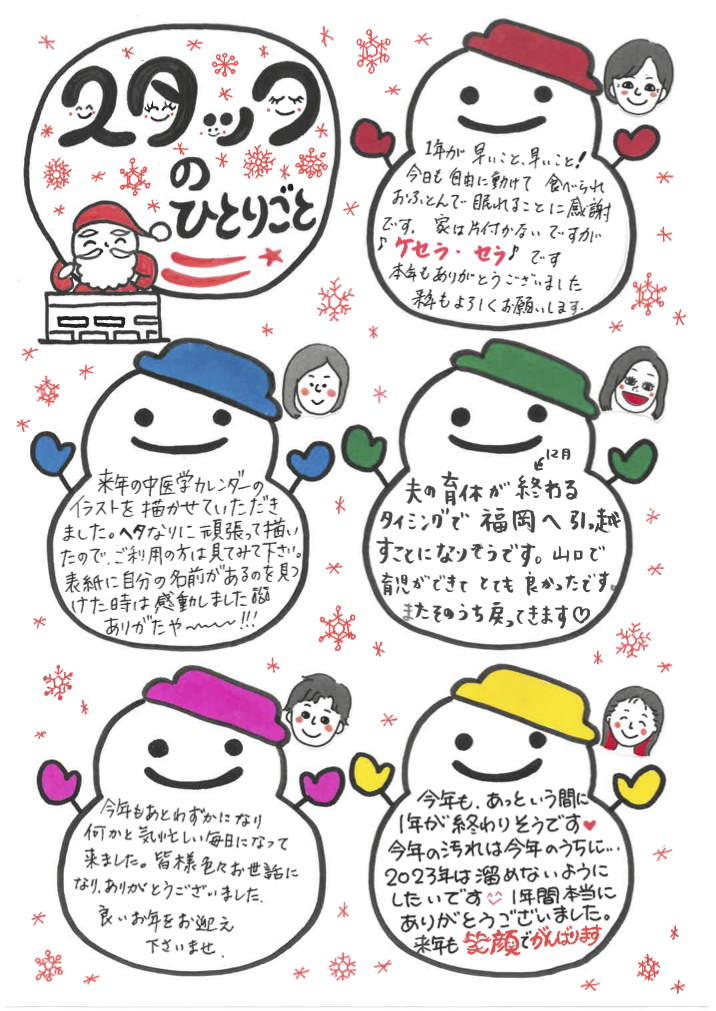 スタッフ
の
ひとりごと
1年が早いこと、早いこと!
今日も自由に動けて 食べられ
おふとんで眠れることに感謝
です。家は片付かないですが
♪ケセラ・セラ♪です
本年もありがとうございました
来年もよろしくお願いします。
来年の中医学カレンダーの
イラストを描かせていただき
ました。ヘタなりに頑張って描い
たので、ご利用の方は見てみて下さい。
表紙に自分の名前があるのを見つ
けた時は感動しました
ありがたや〜〜〜!!!
12月
夫の育休が終わる
タイミングで福岡へ引っ越
すことになりそうです。山口で
育児ができてとても良かったです。
またそのうち戻ってきます♡
今年もあとわずかになり
何かと気忙しい毎日になって
来ました。皆様色々お世話に
なり、ありがとうございました。
良いお年をお迎え
下さいませ。
今年も、あっという間に
1年が終わりそうです♥
今年の汚れは今年のうちに…
2023年は溜めないように
したいです 1年間本当に
ありがとうございました。
来年も笑顔でがんばります